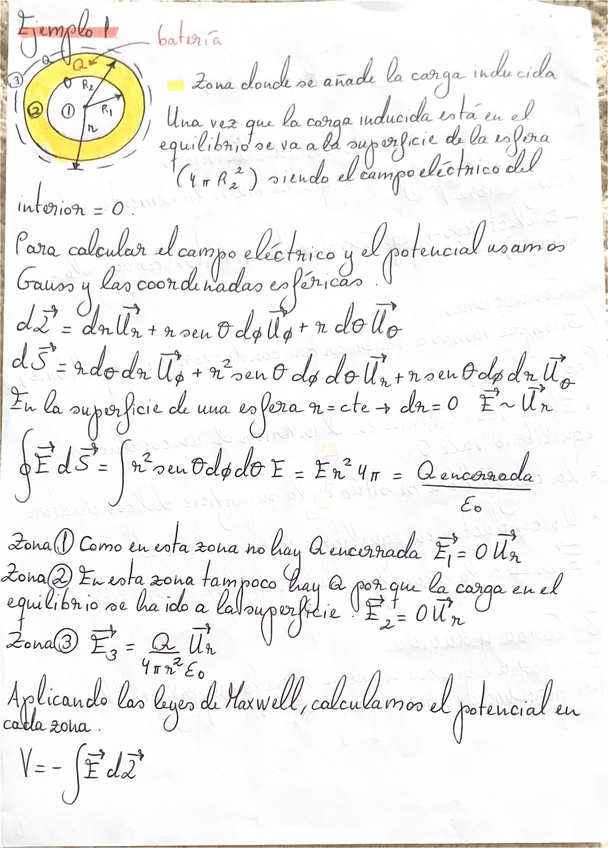 Ejemplo 1
batería
Q
Q
③
R₂
②
①
R₁
r
Zona donde se añade la carga inducida
Una vez que la carga inducida está en el
equilibrio se va a la superficie de la esfera
(4πR₂²) siendo el campo eléctrico del
interior = 0.
Para calcular el campo eléctrico y el potencial usamos
Gauss y las coordenadas esféricas.
d𝓵⃗ = dr U⃗r + r sen θ dφ U⃗φ + r dθ U⃗θ
dS⃗ = r dθ dr U⃗φ + r² sen θ dφ dθ U⃗r + r sen θ dφ dr U⃗θ
En la superficie de una esfera r = cte → dr = 0 E⃗ ~ U⃗r
∮ E⃗ dS⃗ = ∫ r² sen θ dφ dθ E = E r² 4π = Q encerrada / ε₀
Zona ① Como en esta zona no hay Q encerrada E⃗₁ = 0 U⃗r
Zona ② En esta zona tampoco hay Q porque la carga en el
equilibrio se ha ido a la superficie. E⃗₂ = 0 U⃗r
Zona ③ E⃗₃ = Q / 4πr² ε₀ U⃗r
Aplicando las leyes de Maxwell, calculamos el potencial en
cada zona.
V = - ∫ E⃗ d𝓵⃗